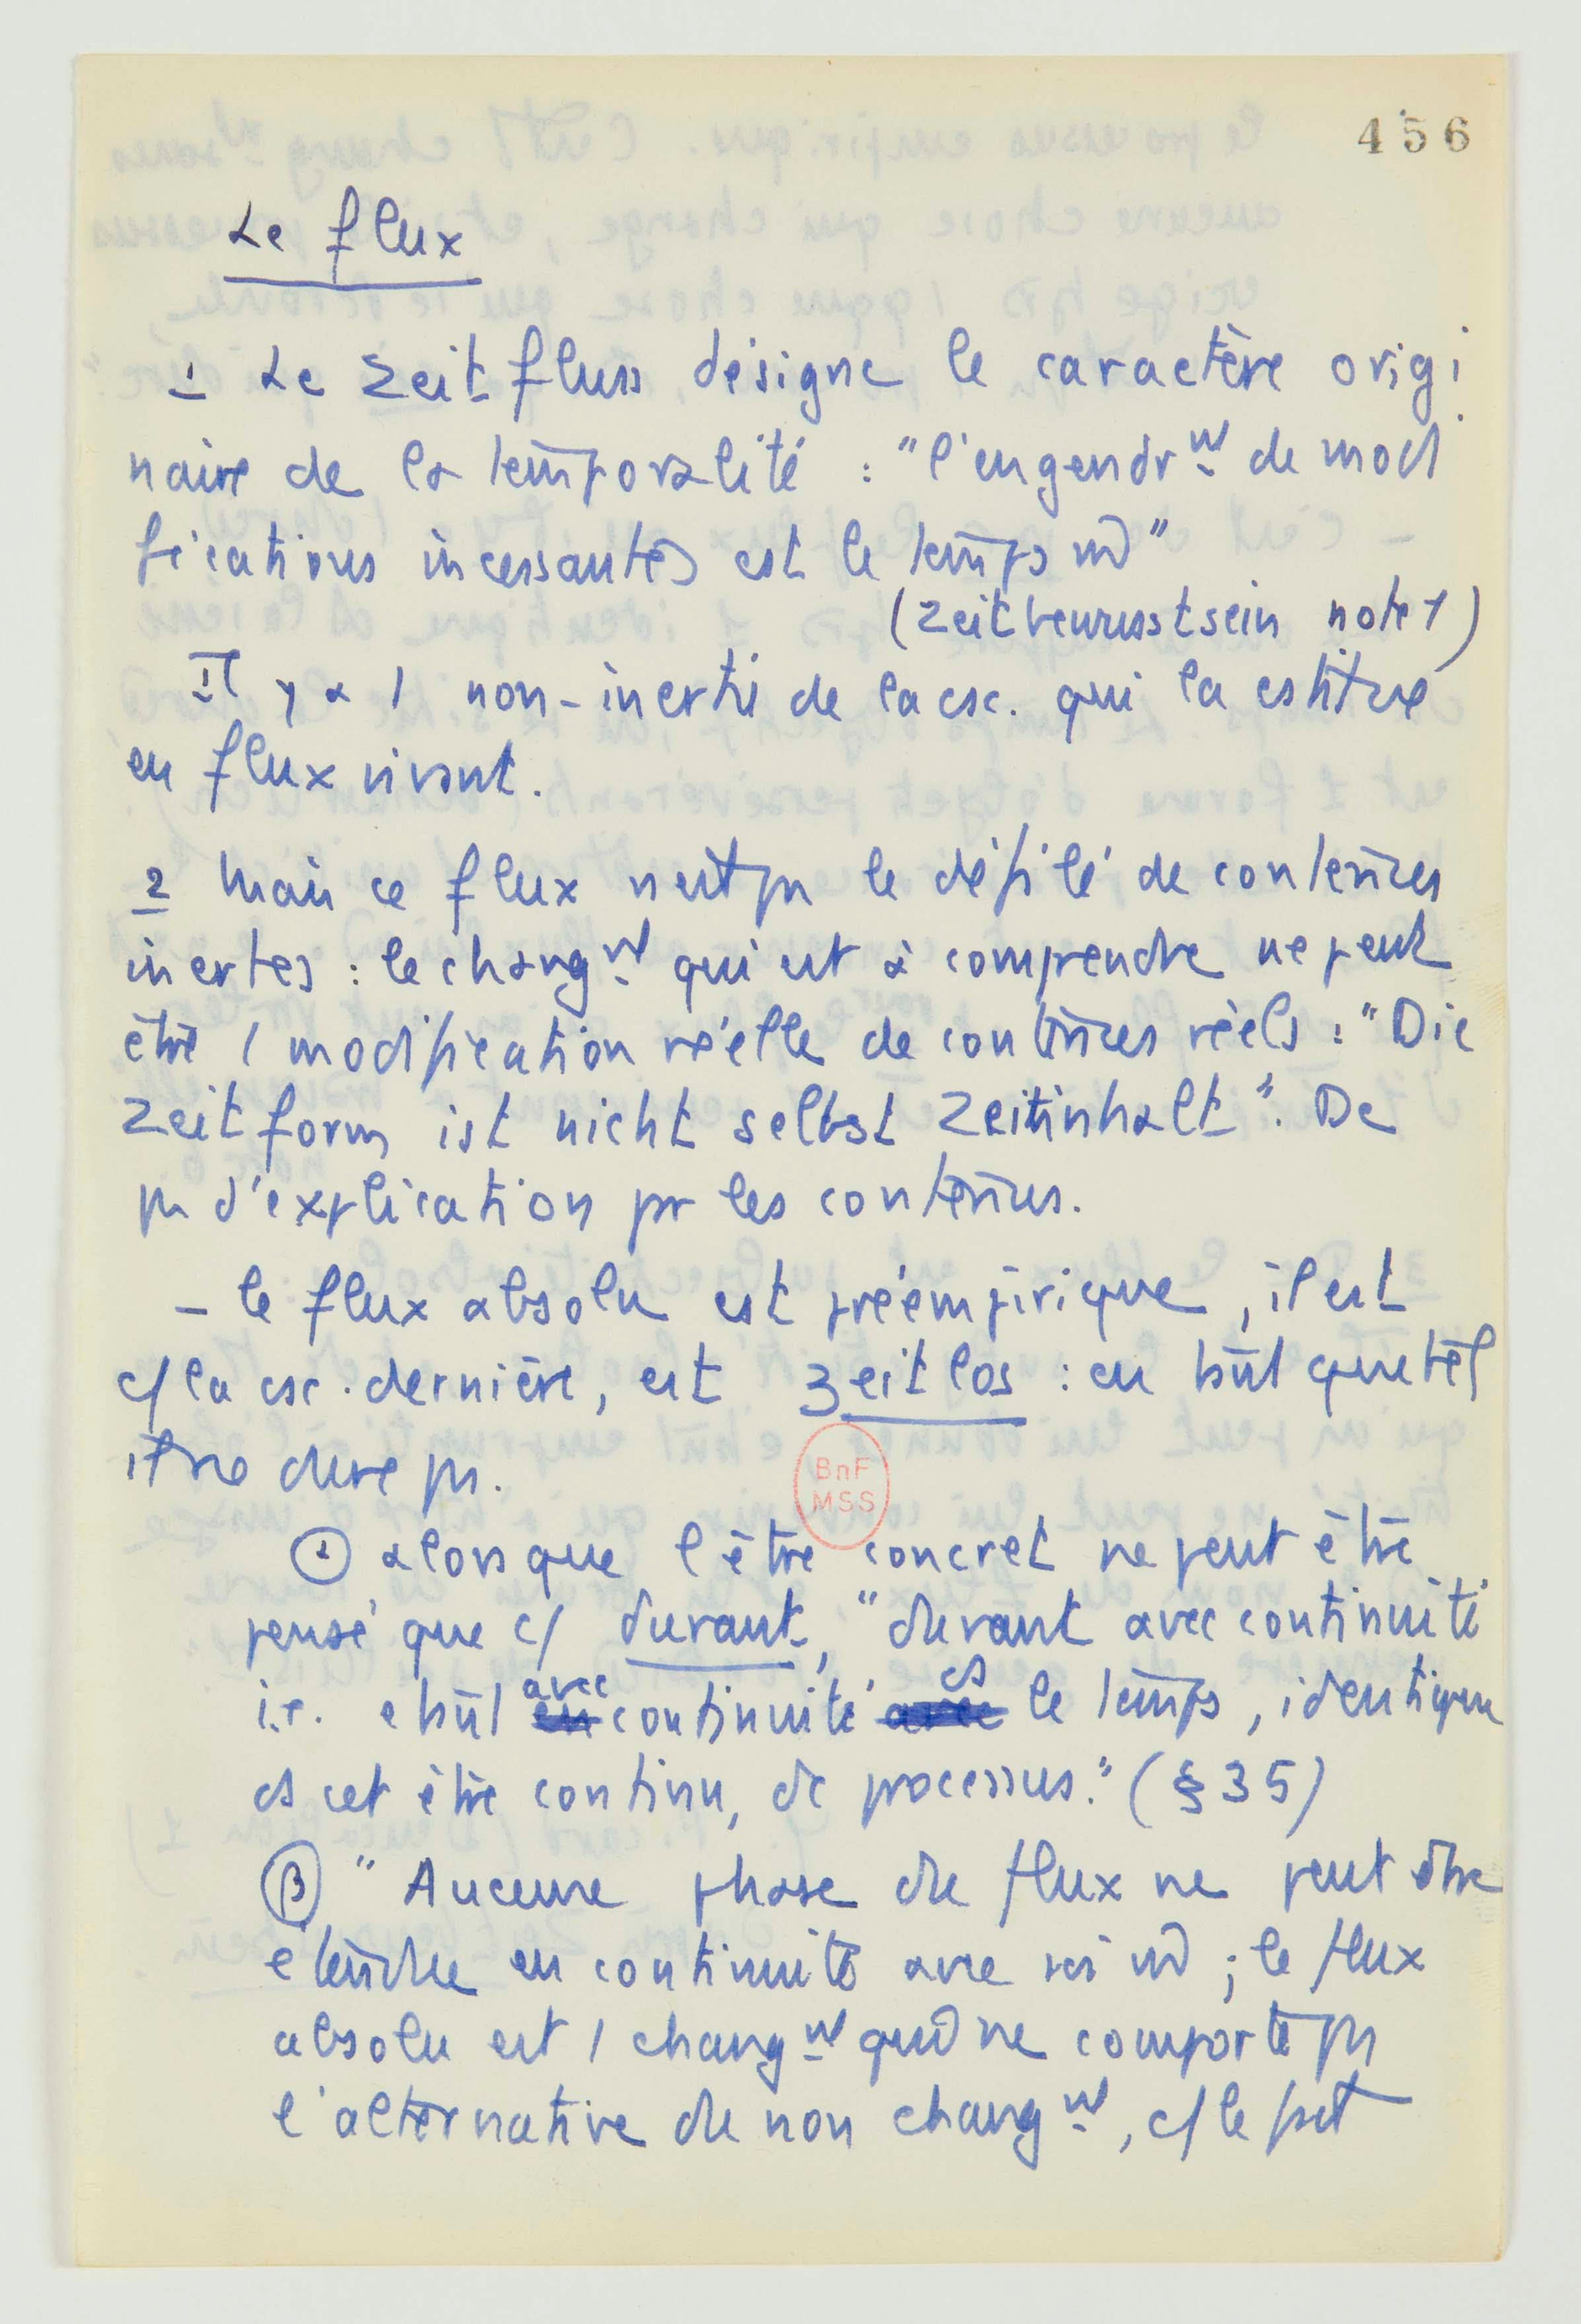 456
Le flux
1 Le Zeitfluss désigne le caractère origi
naire de la temporalité : "l'engendrt de modi
fications incessantes est le temps m̂"
(Zeitbewusstsein note 1)
Il y a 1 non-inertie de la csc. qui la cstitue
en flux vivant.
2 Mais ce flux n'est pas le défilé de contenus
inertes : le changt qui est à comprendre ne peut
être 1 modification réelle de contenus réels : "Die
Zeitform ist nicht selbst Zeitinhalt". De
pas d'explication par les contenus.
– le flux absolu est préempirique, il est
c/ la csc. dernière, est zeitlos : en tant que tel
il ne dure pas.
α alors que l'être concret ne peut être
pensé que c/ durant, "durant avec continuité
i.e. étant avec continuité ds le temps, identique
ds cet être continu, de processus." (§ 35)
β "Aucune phase du flux ne peut être
étendue en continuité avec soi m̂ ; le flux
absolu est 1 changt qui ne comporte pas
l'alternative du non changt, c/ le fait
BnF
MSS